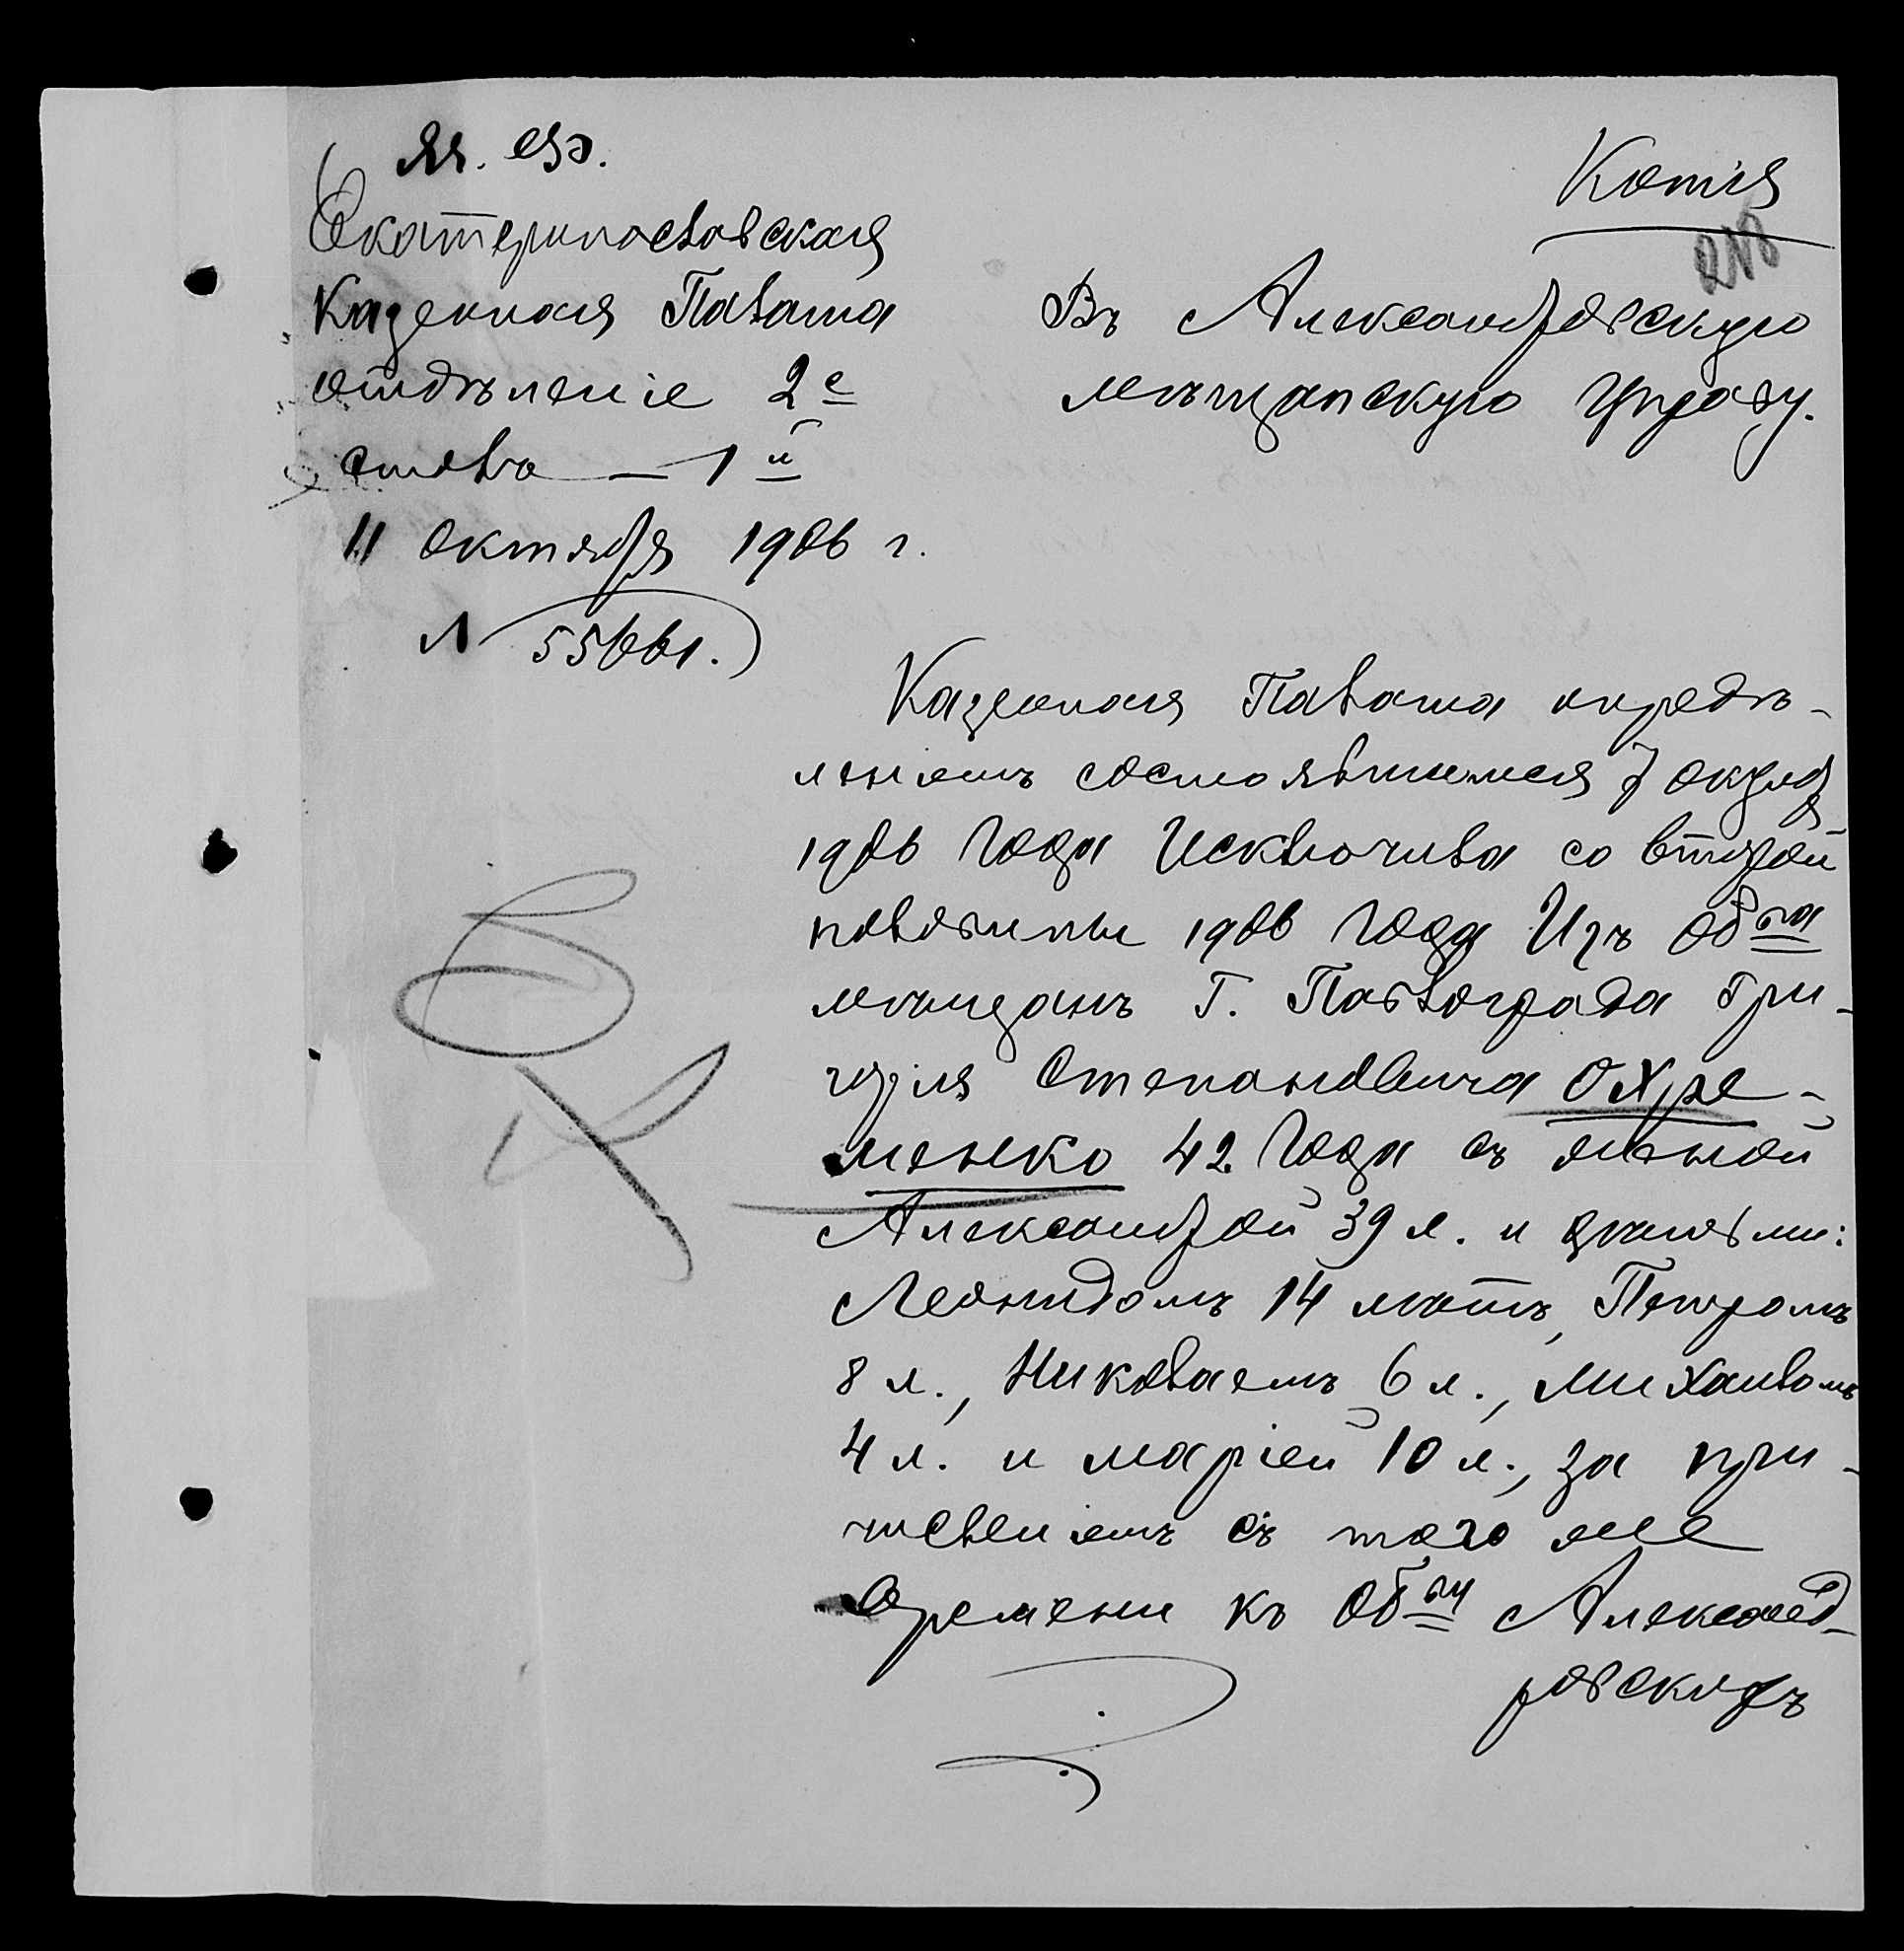 М. Ф.
Екатеринославская
Казенная Палата
отдѣленіе 2е
столъ — 1й
11 октября 1906 г.
№ 55661.
Копія
Въ Александровскую
мѣщанскую Управу.
Казенная Палата опредѣ-
леніемъ состоявшимся 7 октяб
1906 года Исключила со второй
половины 1906 года Изъ Обва
мѣщанъ Г. Павлограда Гри-
горія Степановича Охре-
менко 42 года съ женой
Александрой 39 л. и дѣтьми:
Леонидомъ 14 лѣтъ, Петромъ
8 л., Николаемъ 6 л., Михаиломъ
4 л. и Маріей 10 л., за при-
численіемъ съ того же
времени къ Обву Александ-
ровскихъ